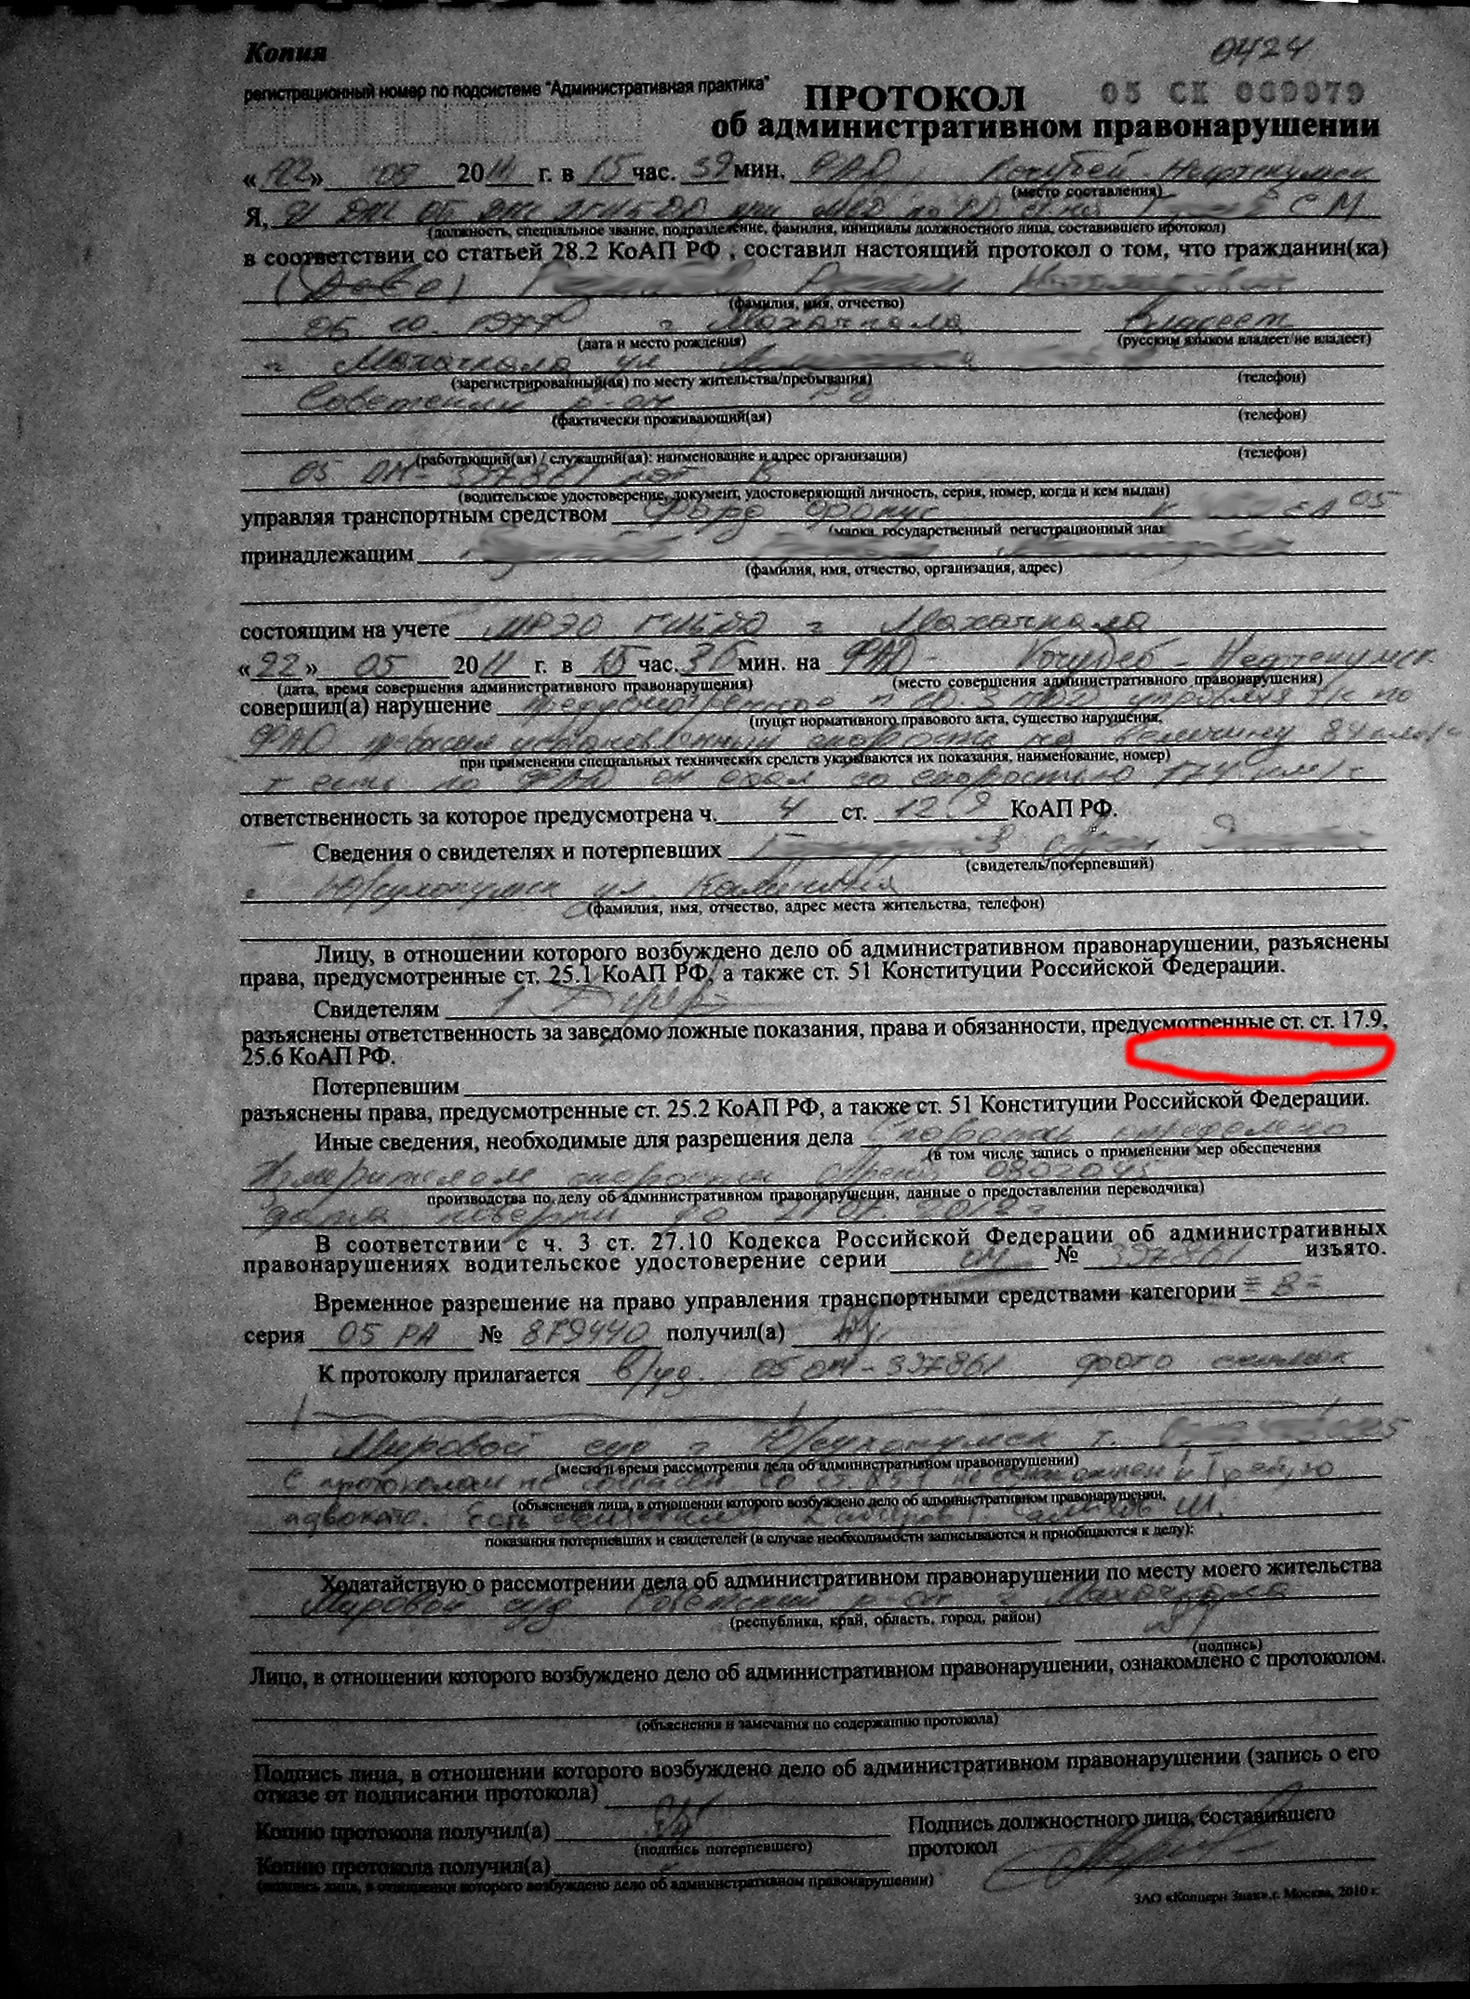 Копия
0424
регистрационный номер по подсистеме "Административная практика"
ПРОТОКОЛ 05 СК 069079
об административном правонарушении
«22» 2011 г. в 15 час. 39 мин. ФАД Кочубей-Нефтекумск
(место составления)
Я, С М
(должность, специальное звание, подразделение, фамилия, инициалы должностного лица, составившего протокол)
в соответствии со статьей 28.2 КоАП РФ , составил настоящий протокол о том, что гражданин(ка)
(фамилия, имя, отчество)
06 10. 1977 г Махачкала владеет
(дата и место рождения) (русским языком владеет/не владеет)
г Махачкала ул
(зарегистрированный(ая) по месту жительства/пребывания) (телефон)
Советский р-он
(фактически проживающий(ая) (телефон)
(работающий(ая) / служащий(ая): наименование и адрес организации) (телефон)
05 ОМ-397861 кат В
(водительское удостоверение, документ, удостоверяющий личность, серия, номер, когда и кем выдан)
управляя транспортным средством Форд Фокус 05
(марка, государственный регистрационный знак
принадлежащим
(фамилия, имя, отчество, организация, адрес)
состоящим на учете МРЭО ГИБДД г Махачкала
«22» 05 2011 г. в 15 час. 36 мин. на ФАД- Кочубей - Нефтекумск
(дата, время совершения административного правонарушения) (место совершения административного правонарушения)
совершил(а) нарушение предусмотренное п 10.3 ПДД управляя по
(пункт нормативного правового акта, существо нарушения,
ФАД превысил установленный скорость на величину 84 км/ч
при применении специальных технических средств указываются их показания, наименование, номер)
т есть по ФАД он ехал со скоростью 174 км/ч
ответственность за которое предусмотрена ч. 4 ст. 12.9 КоАП РФ.
Сведения о свидетелях и потерпевших
(свидетель/потерпевший)
г Ю/сухокумск ул. Калинина
(фамилия, имя, отчество, адрес места жительства, телефон)
Лицу, в отношении которого возбуждено дело об административном правонарушении, разъяснены
права, предусмотренные ст. 25.1 КоАП РФ, а также ст. 51 Конституции Российской Федерации.
Свидетелям
разъяснены ответственность за заведомо ложные показания, права и обязанности, предусмотренные ст. ст. 17.9,
25.6 КоАП РФ.
Потерпевшим
разъяснены права, предусмотренные ст. 25.2 КоАП РФ, а также ст. 51 Конституции Российской Федерации.
Иные сведения, необходимые для разрешения дела Скорость определено
(в том числе запись о применении мер обеспечения
Измерителем скорости Арена 0802045
производства по делу об административном правонарушении, данные о предоставлении переводчика)
дата поверки до 2012г
В соответствии с ч. 3 ст. 27.10 Кодекса Российской Федерации об административных
правонарушениях водительское удостоверение серии ОМ № 397861 изъято.
Временное разрешение на право управления транспортными средствами категории = В =
серия 05 РА № 879440 получил(а)
К протоколу прилагается в/уд. 05 ОМ-397861 фото снимок
Мировой суд г Ю/сухокумск т.
(место и время рассмотрения дела об административном правонарушении)
С протоколом не согласен со не ознакомлен Требую
(объяснения лица, в отношении которого возбуждено дело об административном правонарушении,
адвоката. Есть свидетели
показания потерпевших и свидетелей (в случае необходимости записываются и приобщаются к делу):
Ходатайствую о рассмотрении дела об административном правонарушении по месту моего жительства
Мировой суд Советский р-он г Махачкала
(республика, край, область, город, район)
(подпись)
Лицо, в отношении которого возбуждено дело об административном правонарушении, ознакомлено с протоколом.
(объяснения и замечания по содержанию протокола)
Подпись лица, в отношении которого возбуждено дело об административном правонарушении (запись о его
отказе от подписании протокола)
Копию протокола получил(а) Подпись должностного лица, составившего
(подпись потерпевшего) протокол
Копию протокола получил(а)
(подпись лица, в отношении которого возбуждено дело об административном правонарушении)
ЗАО «Концерн Знак», г. Москва, 2010 г.